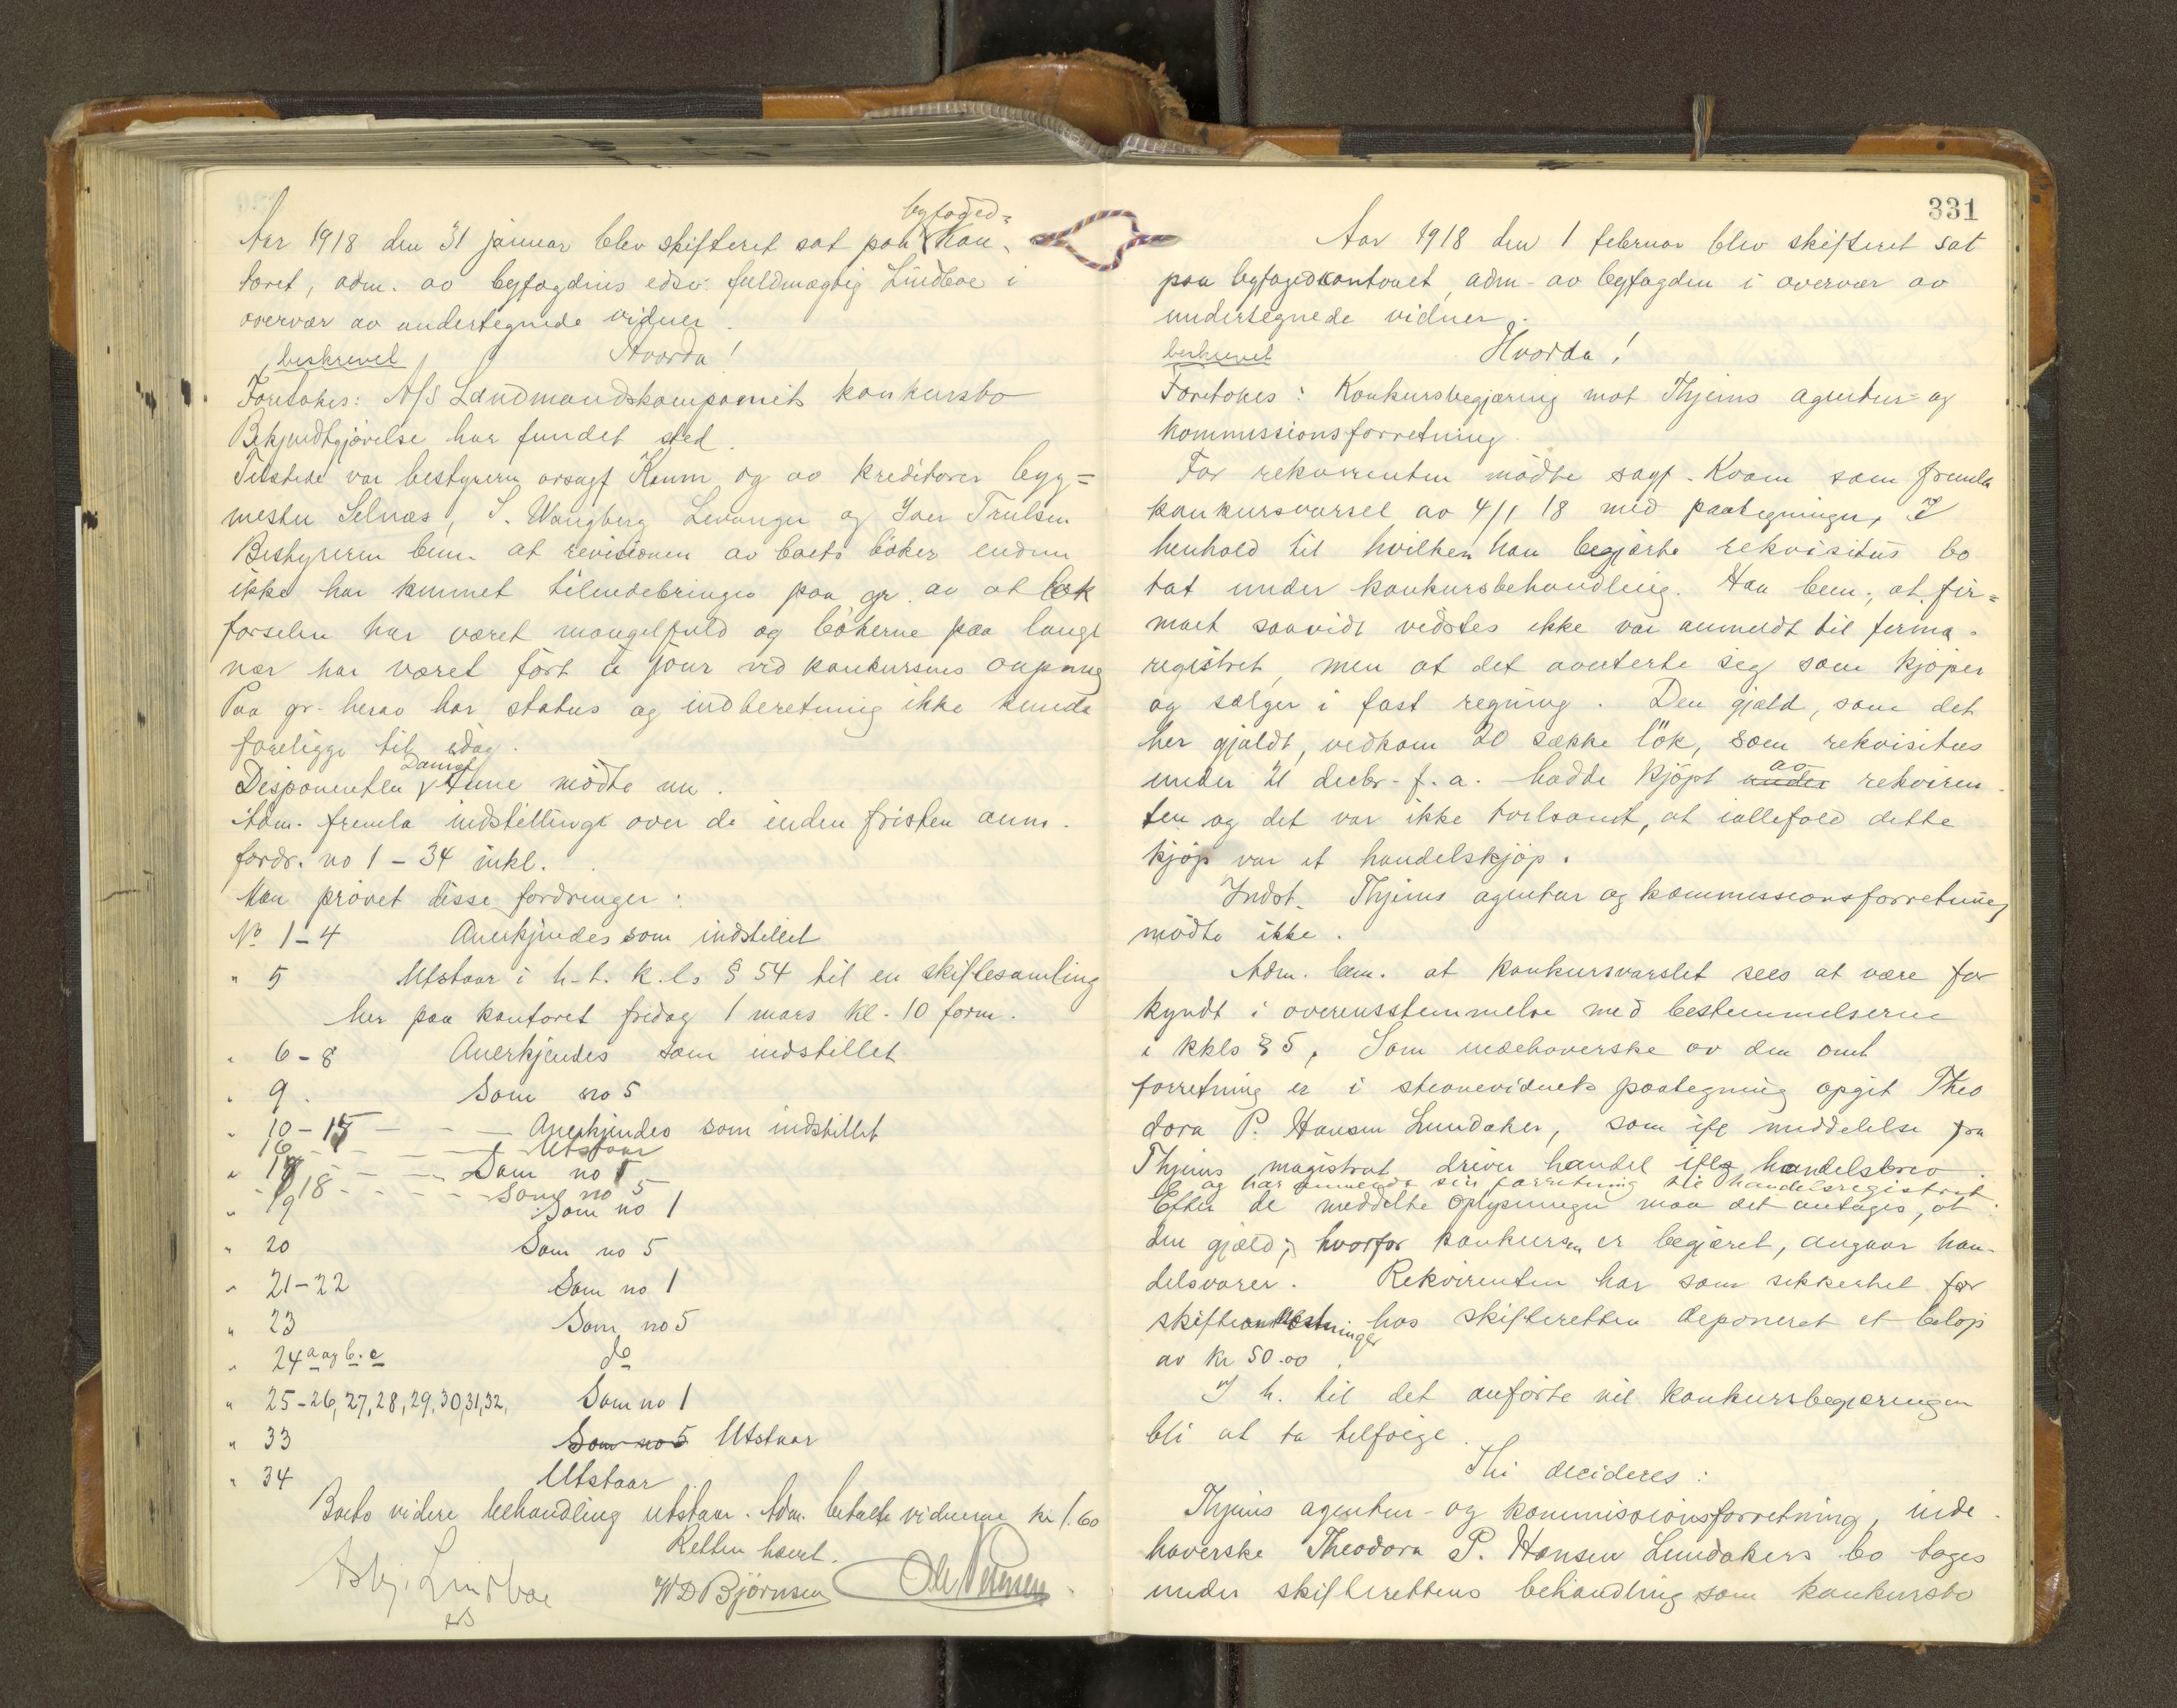 byfoged=
Aar 1918 den 31 januar blev skifteret sat paa kon-
toret, adm. av byfogdens edsv. fuldmægtig Lindboe i
overvær av undertegnede vidner.
beskrevet Hvorda!
Foretokes: A/S Landmandskompaniets konkursbo
Bekjendtgjørelse har fundet sted.
Tilstede var bestyreren orsagf. Kaum og av kreditorer byg=
mester Selnæs, S. Wangberg Levanger og Iver Trulsen
Bestyreren bem. at revisionen av boets bøker endnu
ikke har kunnet tilendebringes paa gr. av at bok
førselen har været mangelfuld og bøkerne paa langt
nær har været ført à jour ved konkursens aapning
Paa gr. herav har status og indberetning ikke kunde
foreligge til idag.
Daniel
Disponenten Aune mødte nu.
Adm. fremla indstillinge over de inden fristen anm.
fordr. no 1 - 34 inkl.
Man prøvet disse fordringer:
No 1-4 Anerkjendes som indstillet
" 5 Utstaar i h. t. k. ls § 54 til en skiftesamling
her paa kontoret fredag 1 mars kl. 10 form.
" 6-8 Anerkjendes som indstillet
" 9. Som no 5
" 10-15 - - - Anerkjendes som indstillet
16 - - - - Utstaar
" 17 - - - Som no 1
" 18 - - - - Som no 5
" 19 Som no 1
" 20 Som no 5
" 21-22 Som no 1
" 23 Som no 5
" 24 a og b. c do
" 25-26, 27, 28, 29, 30, 31, 32, Som no 1
" 33 Som no 5 Utstaar
" 34 Utstaar
Boets videre behandling utstaar. Adm. betalte vidnerne kr 1.60
Retten hævet.
Asbj. Lindboe W D Bjørnsen Ole Petersen
331
Aar 1918 den 1 februar blev skifteret sat
paa byfogedkontoret, adm. av byfogden i overvær av
undertegnede vidner.
beskrevet Hvorda!
Foretokes: Konkursbegjæring mot Thjems agentur- og
kommissionsforretning.
For rekvirenten mødte sagf. Kvam som fremla
konkursvarsel av 4/1 18 med paategninger, I
henhold til hvilken han begjærte rekvisitus bo
tat under konkursbehandling. Han bem., at fir=
maet saavidt vidstes ikke var anmeldt til firma-
registret, men at det averterte seg som kjøper
og sælger i fast regning. Den gjæld, som det
her gjaldt, vedkom 20 sække løk, som rekvisitus
under 21 decbr. f. a. hadde kjøpt under av rekviren-
ten og det var ikke tvilsomt, at iallefald dette
kjøp var et handelskjøp.
Indst. Thjems agentur og kommissionsforretning
mødte ikke.
Adm. bem. at konkursvarslet sees at være for
kyndt i overensstemmelse med bestemmelserne
i kkls § 5, Som indehaverske av den omt
forretning er i stevnevidnets paategning opgit Theo
dora P. Hansen Lundaker, som ifl meddelelse fra
Thjems magistrat driver handel iflg handelsbrev.
og har anmeldt sin forretning til handelsregistret.
Efter de meddelte oplysninger maa det antages, at
den gjæld, hvorfor konkursen er begjæret, angaar han-
delsvarer. Rekvirenten har som sikkerhet for
skifteomkostninger hos skifteretten deponeret et beløp
av kr 50.00.
I h. til det anførte vil konkursbegjæringen
bli at ta tilfølge.
Thi decideres:
Thjems agentur- og kommissionsforretning, inde-
haverske Theodora P. Hansen Lundakers bo tages
under skifterettens behandling som konkursbo